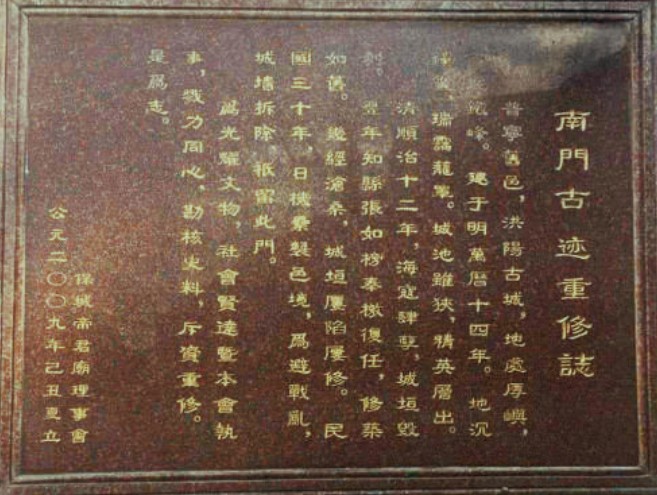 南門古迹重修誌
普寧舊邑，洪陽古城，地處厚嶼，
峰。建于明萬曆十四年。地沉
瑞靄蘢罩。城池雖狹，精英層出。
清順治十二年，海寇肆孽，城垣毀
翌年知縣張如榜奉檄復任，修築
如舊。幾經滄桑，城垣屢陷屢修。民
國三十年，日機襲邑境，爲避戰亂，
城墻拆除，祇留此門。
爲光耀文物，社會賢達暨本會執
事，戮力同心，勘核史料，斥資重修。
是爲志。
保城帝君廟理事會
公元二〇〇九年己丑夏立